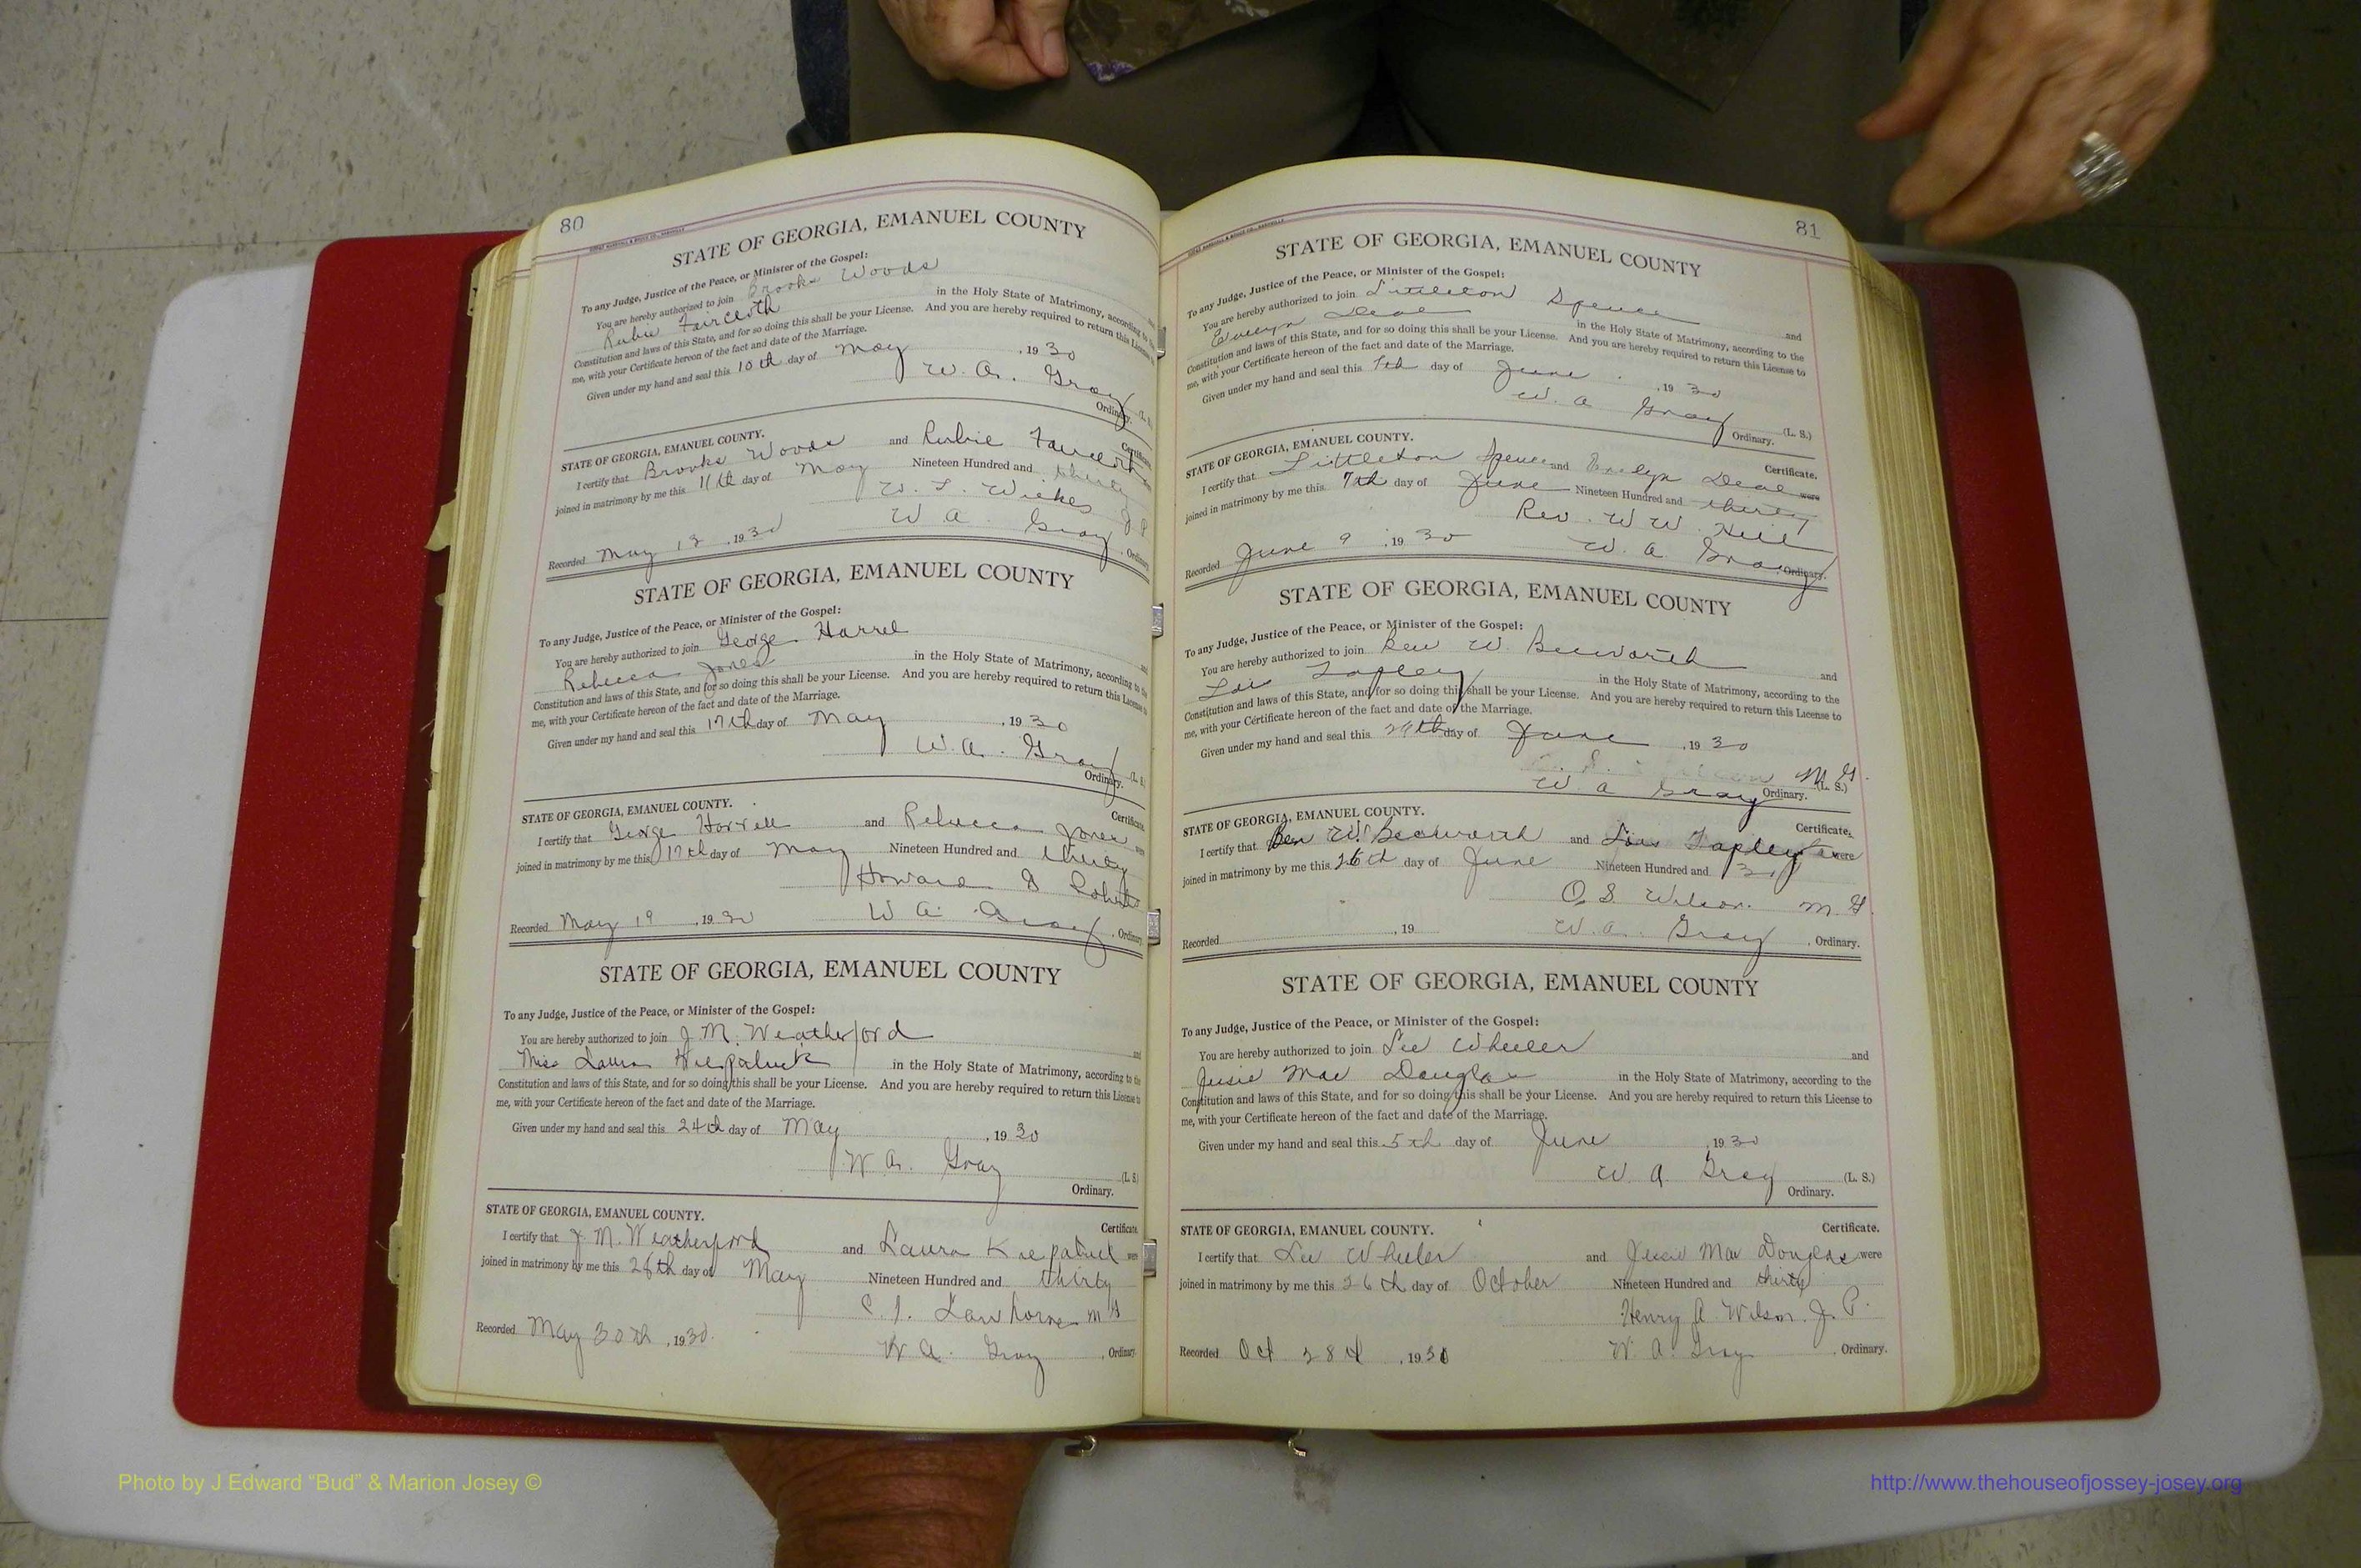 80
STATE OF GEORGIA, EMANUEL COUNTY
To any Judge, Justice of the Peace, or Minister of the Gospel:
You are hereby authorized to join Brooks Woods
and
Rubie Faircloth in the Holy State of Matrimony, according to the
Constitution and laws of this State, and for so doing this shall be your License. And you are hereby required to return this License to
me, with your Certificate hereon of the fact and date of the Marriage.
Given under my hand and seal this 10th day of May , 1930
W. A. Gray (L. S.)
Ordinary.
STATE OF GEORGIA, EMANUEL COUNTY. Certificate.
I certify that Brooks Woods and Rubie Faircloth
joined in matrimony by me this 11th day of May Nineteen Hundred and thirty
W. L. Wickes J P
Recorded May 13 , 1930 W A Gray , Ordinary.
STATE OF GEORGIA, EMANUEL COUNTY
To any Judge, Justice of the Peace, or Minister of the Gospel:
You are hereby authorized to join George Harrel
and
Rebecca Jones in the Holy State of Matrimony, according to the
Constitution and laws of this State, and for so doing this shall be your License. And you are hereby required to return this License to
me, with your Certificate hereon of the fact and date of the Marriage.
Given under my hand and seal this 17th day of May , 1930
W. A. Gray (L. S.)
Ordinary.
STATE OF GEORGIA, EMANUEL COUNTY. Certificate.
I certify that George Harrell and Rebecca Jones were
joined in matrimony by me this 17th day of May Nineteen Hundred and thirty
Howard
Recorded May 19 , 1930 W A. Gray , Ordinary.
STATE OF GEORGIA, EMANUEL COUNTY
To any Judge, Justice of the Peace, or Minister of the Gospel:
You are hereby authorized to join J. M. Weatherford and
Miss Laura Kirpatrick in the Holy State of Matrimony, according to the
Constitution and laws of this State, and for so doing this shall be your License. And you are hereby required to return this License to
me, with your Certificate hereon of the fact and date of the Marriage.
Given under my hand and seal this 24th day of May , 1930
W. A. Gray (L. S)
Ordinary.
STATE OF GEORGIA, EMANUEL COUNTY. Certificate.
I certify that J. M. Weatherford and Laura were
joined in matrimony by me this 28th day of May Nineteen Hundred and thirty
Lawhorne M G
Recorded May 30th , 1930. W A. Gray , Ordinary.
81
STATE OF GEORGIA, EMANUEL COUNTY
To any Judge, Justice of the Peace, or Minister of the Gospel:
You are hereby authorized to join Littleton Spence and
Evelyn Deal in the Holy State of Matrimony, according to the
Constitution and laws of this State, and for so doing this shall be your License. And you are hereby required to return this License to
me, with your Certificate hereon of the fact and date of the Marriage.
Given under my hand and seal this 7th day of June , 1930
W. A Gray (L. S.)
Ordinary.
STATE OF GEORGIA, EMANUEL COUNTY. Certificate.
I certify that Littleton Spence and Evelyn Deal were
joined in matrimony by me this 7th day of June Nineteen Hundred and thirty
Rev. W W. Hill
Recorded June 9 , 1930 W. A Gray , Ordinary.
STATE OF GEORGIA, EMANUEL COUNTY
To any Judge, Justice of the Peace, or Minister of the Gospel:
You are hereby authorized to join Ben W. Beckworth and
Lois Tapley in the Holy State of Matrimony, according to the
Constitution and laws of this State, and for so doing this shall be your License. And you are hereby required to return this License to
me, with your Certificate hereon of the fact and date of the Marriage.
Given under my hand and seal this day of June , 1930
M. G.
W A Gray (L. S.)
Ordinary.
STATE OF GEORGIA, EMANUEL COUNTY. Certificate.
I certify that Ben W. Beckworth and Lois Tapley were
joined in matrimony by me this 26th day of June Nineteen Hundred and 30
O. S. Wilson. M. G.
Recorded , 19 W. A. Gray , Ordinary.
STATE OF GEORGIA, EMANUEL COUNTY
To any Judge, Justice of the Peace, or Minister of the Gospel:
You are hereby authorized to join Lee Wheeler and
Jusie Mae Douglas in the Holy State of Matrimony, according to the
Constitution and laws of this State, and for so doing this shall be your License. And you are hereby required to return this License to
me, with your Certificate hereon of the fact and date of the Marriage.
Given under my hand and seal this 5th day of June , 1930
W A. Gray (L. S.)
Ordinary.
STATE OF GEORGIA, EMANUEL COUNTY. Certificate.
I certify that Lee Wheeler and Jusie Mae Douglas were
joined in matrimony by me this 26th day of October Nineteen Hundred and thirty
Henry A. Wilson. J. P.
Recorded Oct 28th , 1930 W. A. Gray , Ordinary.
Photo by J Edward “Bud” & Marion Josey ©
http://www.thehouseofjossey-josey.org